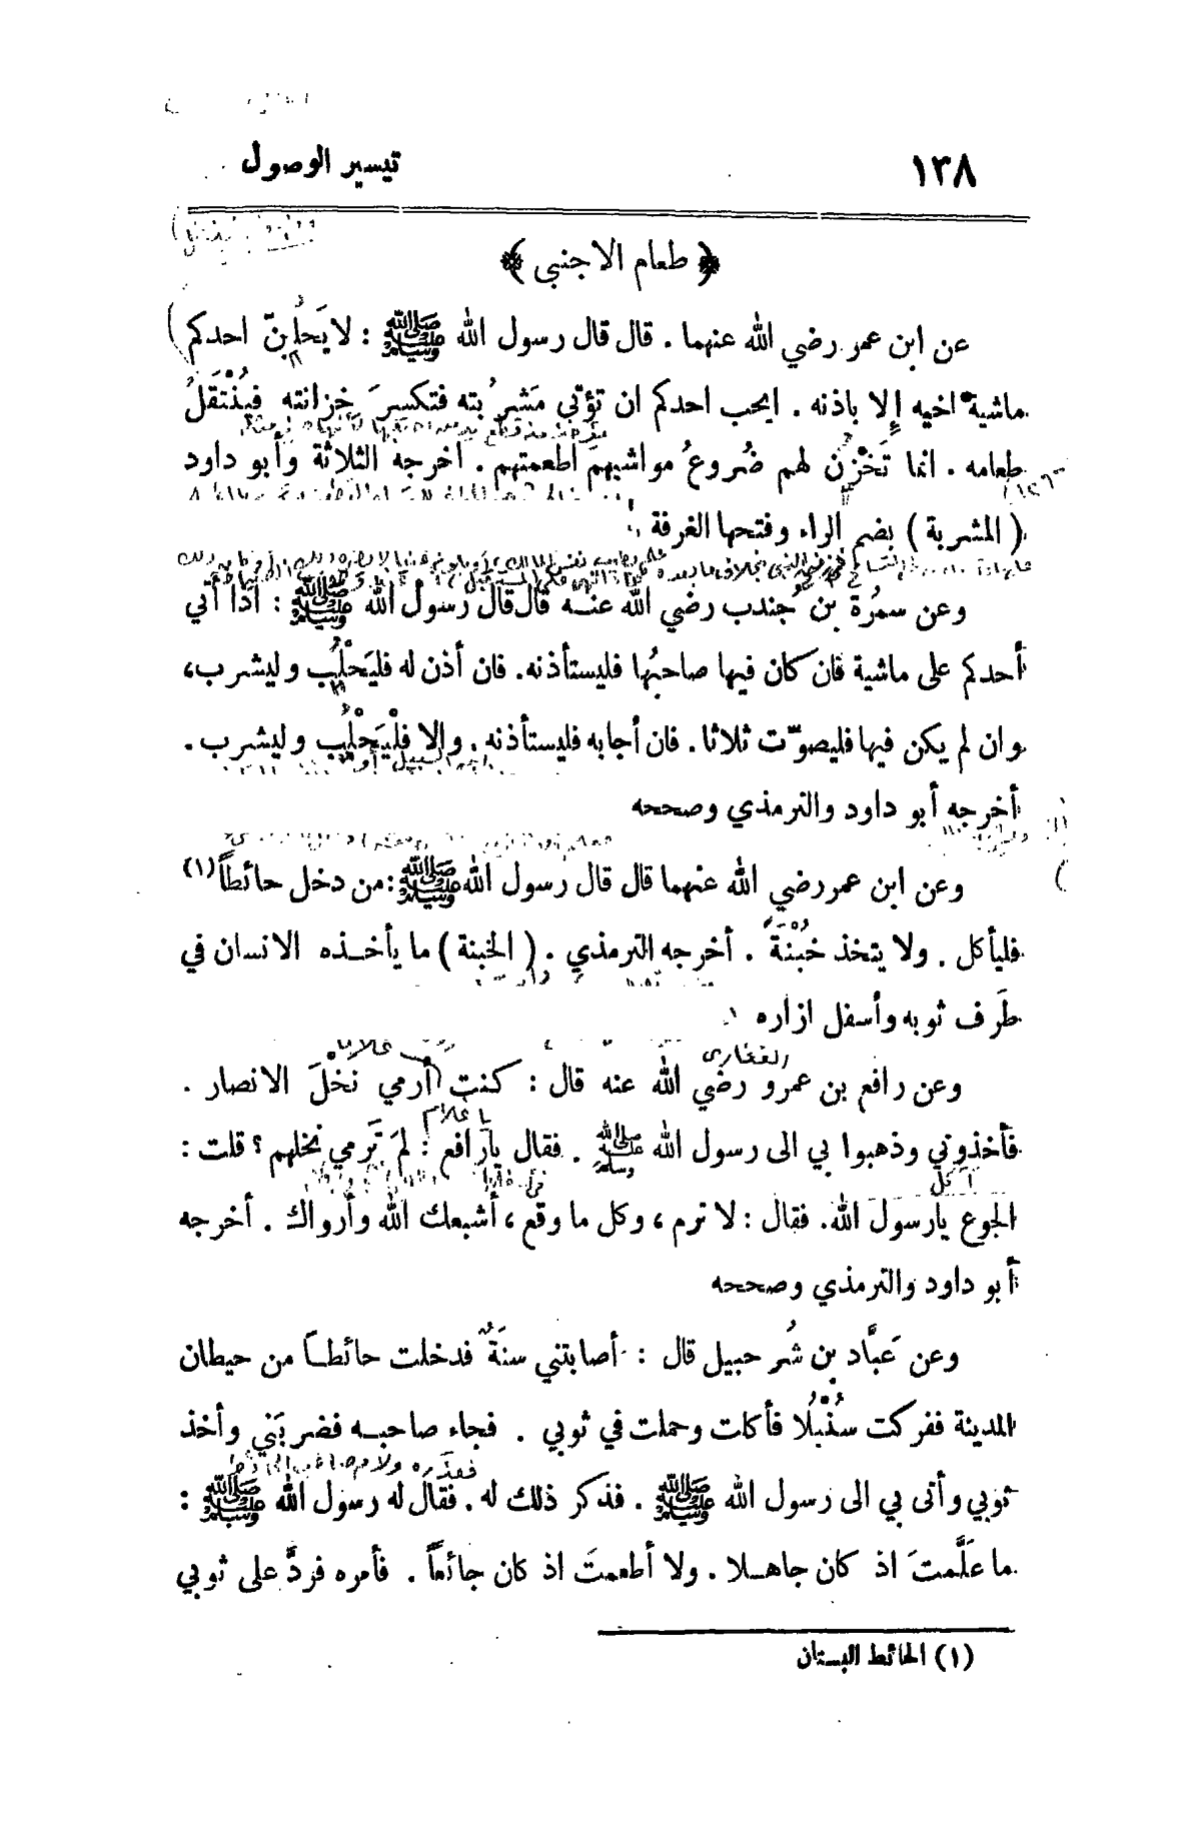 ١٣٨
تيسير الوصول
﴿ طعام الاجنبي ﴾
عن ابن عمر رضي الله عنهما . قال قال رسول الله ﷺ : لا يَحلُبنّ احدكم
ماشية اخيه إلا باذنه . ايحب احدكم ان تؤتى مَشرُبته فتكسرَ خزانته فيُنْتَقلُ
طعامه . انما تَخْزُن لهم ضُروعُ مواشيهم اطعمتهم . اخرجه الثلاثة وأبو داود
( المشربة ) بضم الراء وفتحها الغرفة
وعن سمُرة بن جُندب رضي الله عنه قال قال رسول الله ﷺ : اذا أتى
أحدكم على ماشية فان كان فيها صاحبُها فليستأذنه . فان أذن له فليَحْلُب وليشرب ،
وان لم يكن فيها فليصوّت ثلاثا . فان أجابه فليستأذنه . والا فلْيَحْلُب وليشرب .
أخرجه أبو داود والترمذي وصححه
وعن ابن عمر رضي الله عنهما قال قال رسول الله ﷺ : من دخل حائطاً (١)
فليأكل . ولا يتخذ خُبْنَةً . أخرجه الترمذي . ( الخبنة ) ما يأخذه الانسان في
طَرف ثوبه وأسفل ازاره
الغفارى
وعن رافع بن عمرو رضي الله عنه قال : كنت أرمي نَخْلَ الانصار .
يا غلام
فأخذوني وذهبوا بي الى رسول الله ﷺ . فقال يا رافع : لمَ تَرمي نخلهم ؟ قلت :
آكل
الجوع يا رسول الله . فقال : لا ترم ، وكل ما وقع ، أشبعك الله وأرواك . أخرجه
أبو داود والترمذي وصححه
وعن عَبَّاد بن شُرحبيل قال : أصابتني سنَةٌ فدخلت حائطاً من حيطان
المدينة ففركت سُنْبُلا فأكلت وحملت في ثوبي . فجاء صاحبه فضربَني وأخذ
ثوبي وأتى بي الى رسول الله ﷺ . فذكر ذلك له . فقال له رسول الله ﷺ :
ما عَلَّمتَ اذ كان جاهلا . ولا أطعمتَ اذ كان جائعاً . فأمره فردَّ على ثوبي
(١) الحائط البستان